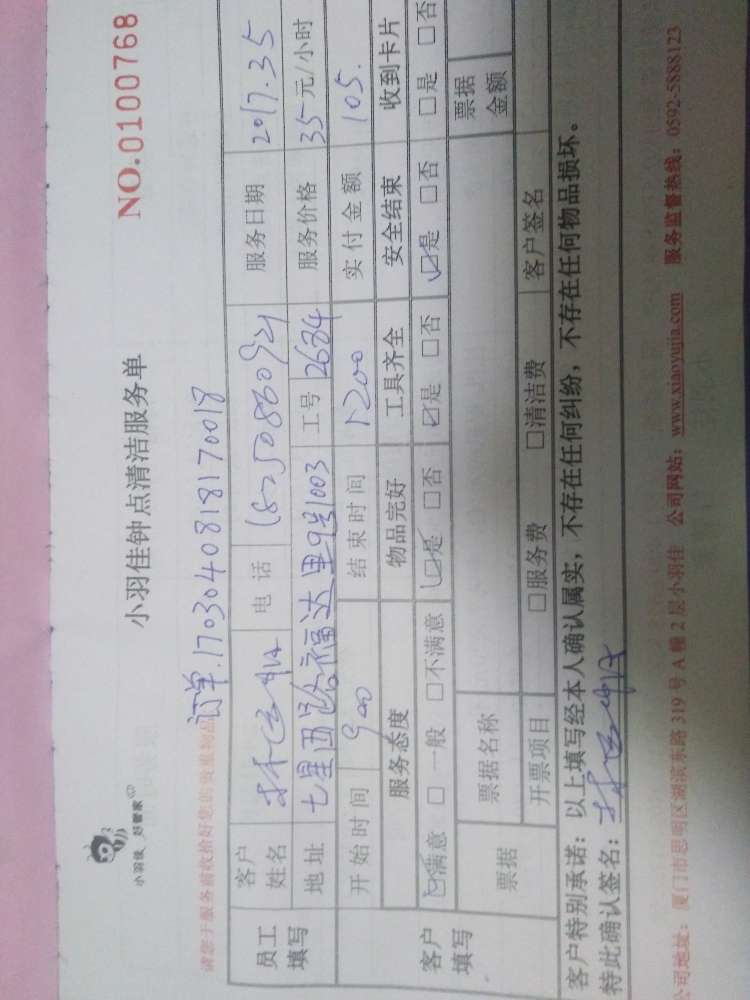 小羽佳 好管家
小羽佳钟点清洁服务单
NO.0100768
请您于服务前收拾好您的贵重物品
订单.1703040818170018
员工填写
客户姓名 电话 18250860921 服务日期 2017.3.5
地址 七星西路福达里9号1003 工号 2684 服务价格 35元/小时
客户填写
开始时间 900 结束时间 1200 实付金额 105.
服务态度 物品完好 工具齐全 安全结束 收到卡片
☑满意 □一般 □不满意 ☑是 □否 ☑是 □否 ☑是 □否 □是 □否
票据 票据名称 票据金额
开票项目 □服务费 □清洁费 客户签名
客户特别承诺：以上填写经本人确认属实，不存在任何纠纷，不存在任何物品损坏。
特此确认签名：
公司地址：厦门市思明区湖滨东路319号A幢2层小羽佳 公司网站：www.xiaoyujia.com 服务监督热线：0592-5888123